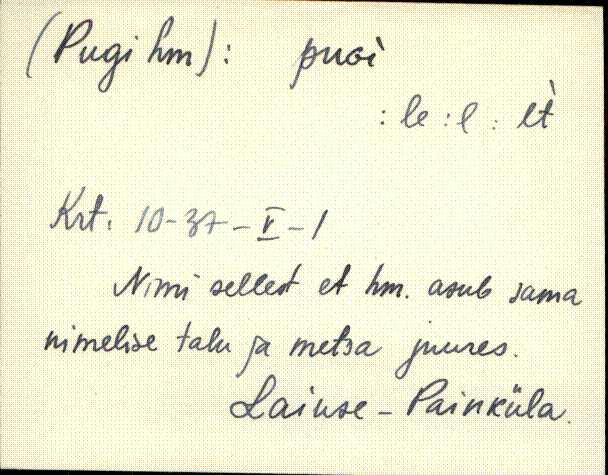 (Pugi hm): puGì
: le : l : lt̀
Krt. 10-37-V-1
Nimi sellest et hm. asub sama
nimelise talu ja metsa juures.
Laiuse - Painküla.